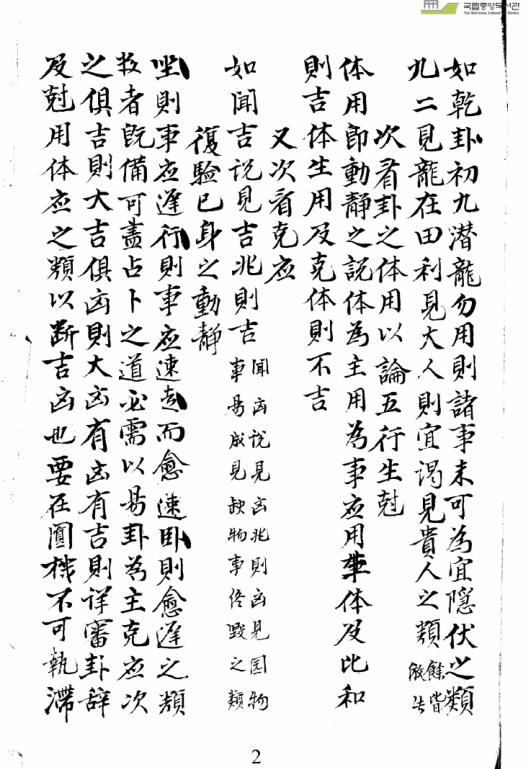 국립중앙도서관
THE NATIONAL LIBRARY OF KOREA
如乾卦初九潜龍勿用則諸事未可為宜隱伏之類
九二見龍在田利見大人則宜謁見貴人之類餘皆倣此
次看卦之体用以論五行生尅
体用即動静之説体為主用為事应用生体及比和
則吉体生用及克体則不吉
又次看克应
如闻吉説見吉兆則吉聞凶説見凶兆則凶見圓物
事易成見缺物事俢毀之類
復驗已身之動静
坐則事应遲行則事应速走而愈速卧則愈遲之類
数者旣備可盡占卜之道必需以易卦為主克应次
之俱吉則大吉俱凶則大凶有凶有吉則详審卦辞
及尅用体应之類以断吉凶也要在圓機不可執滯
2